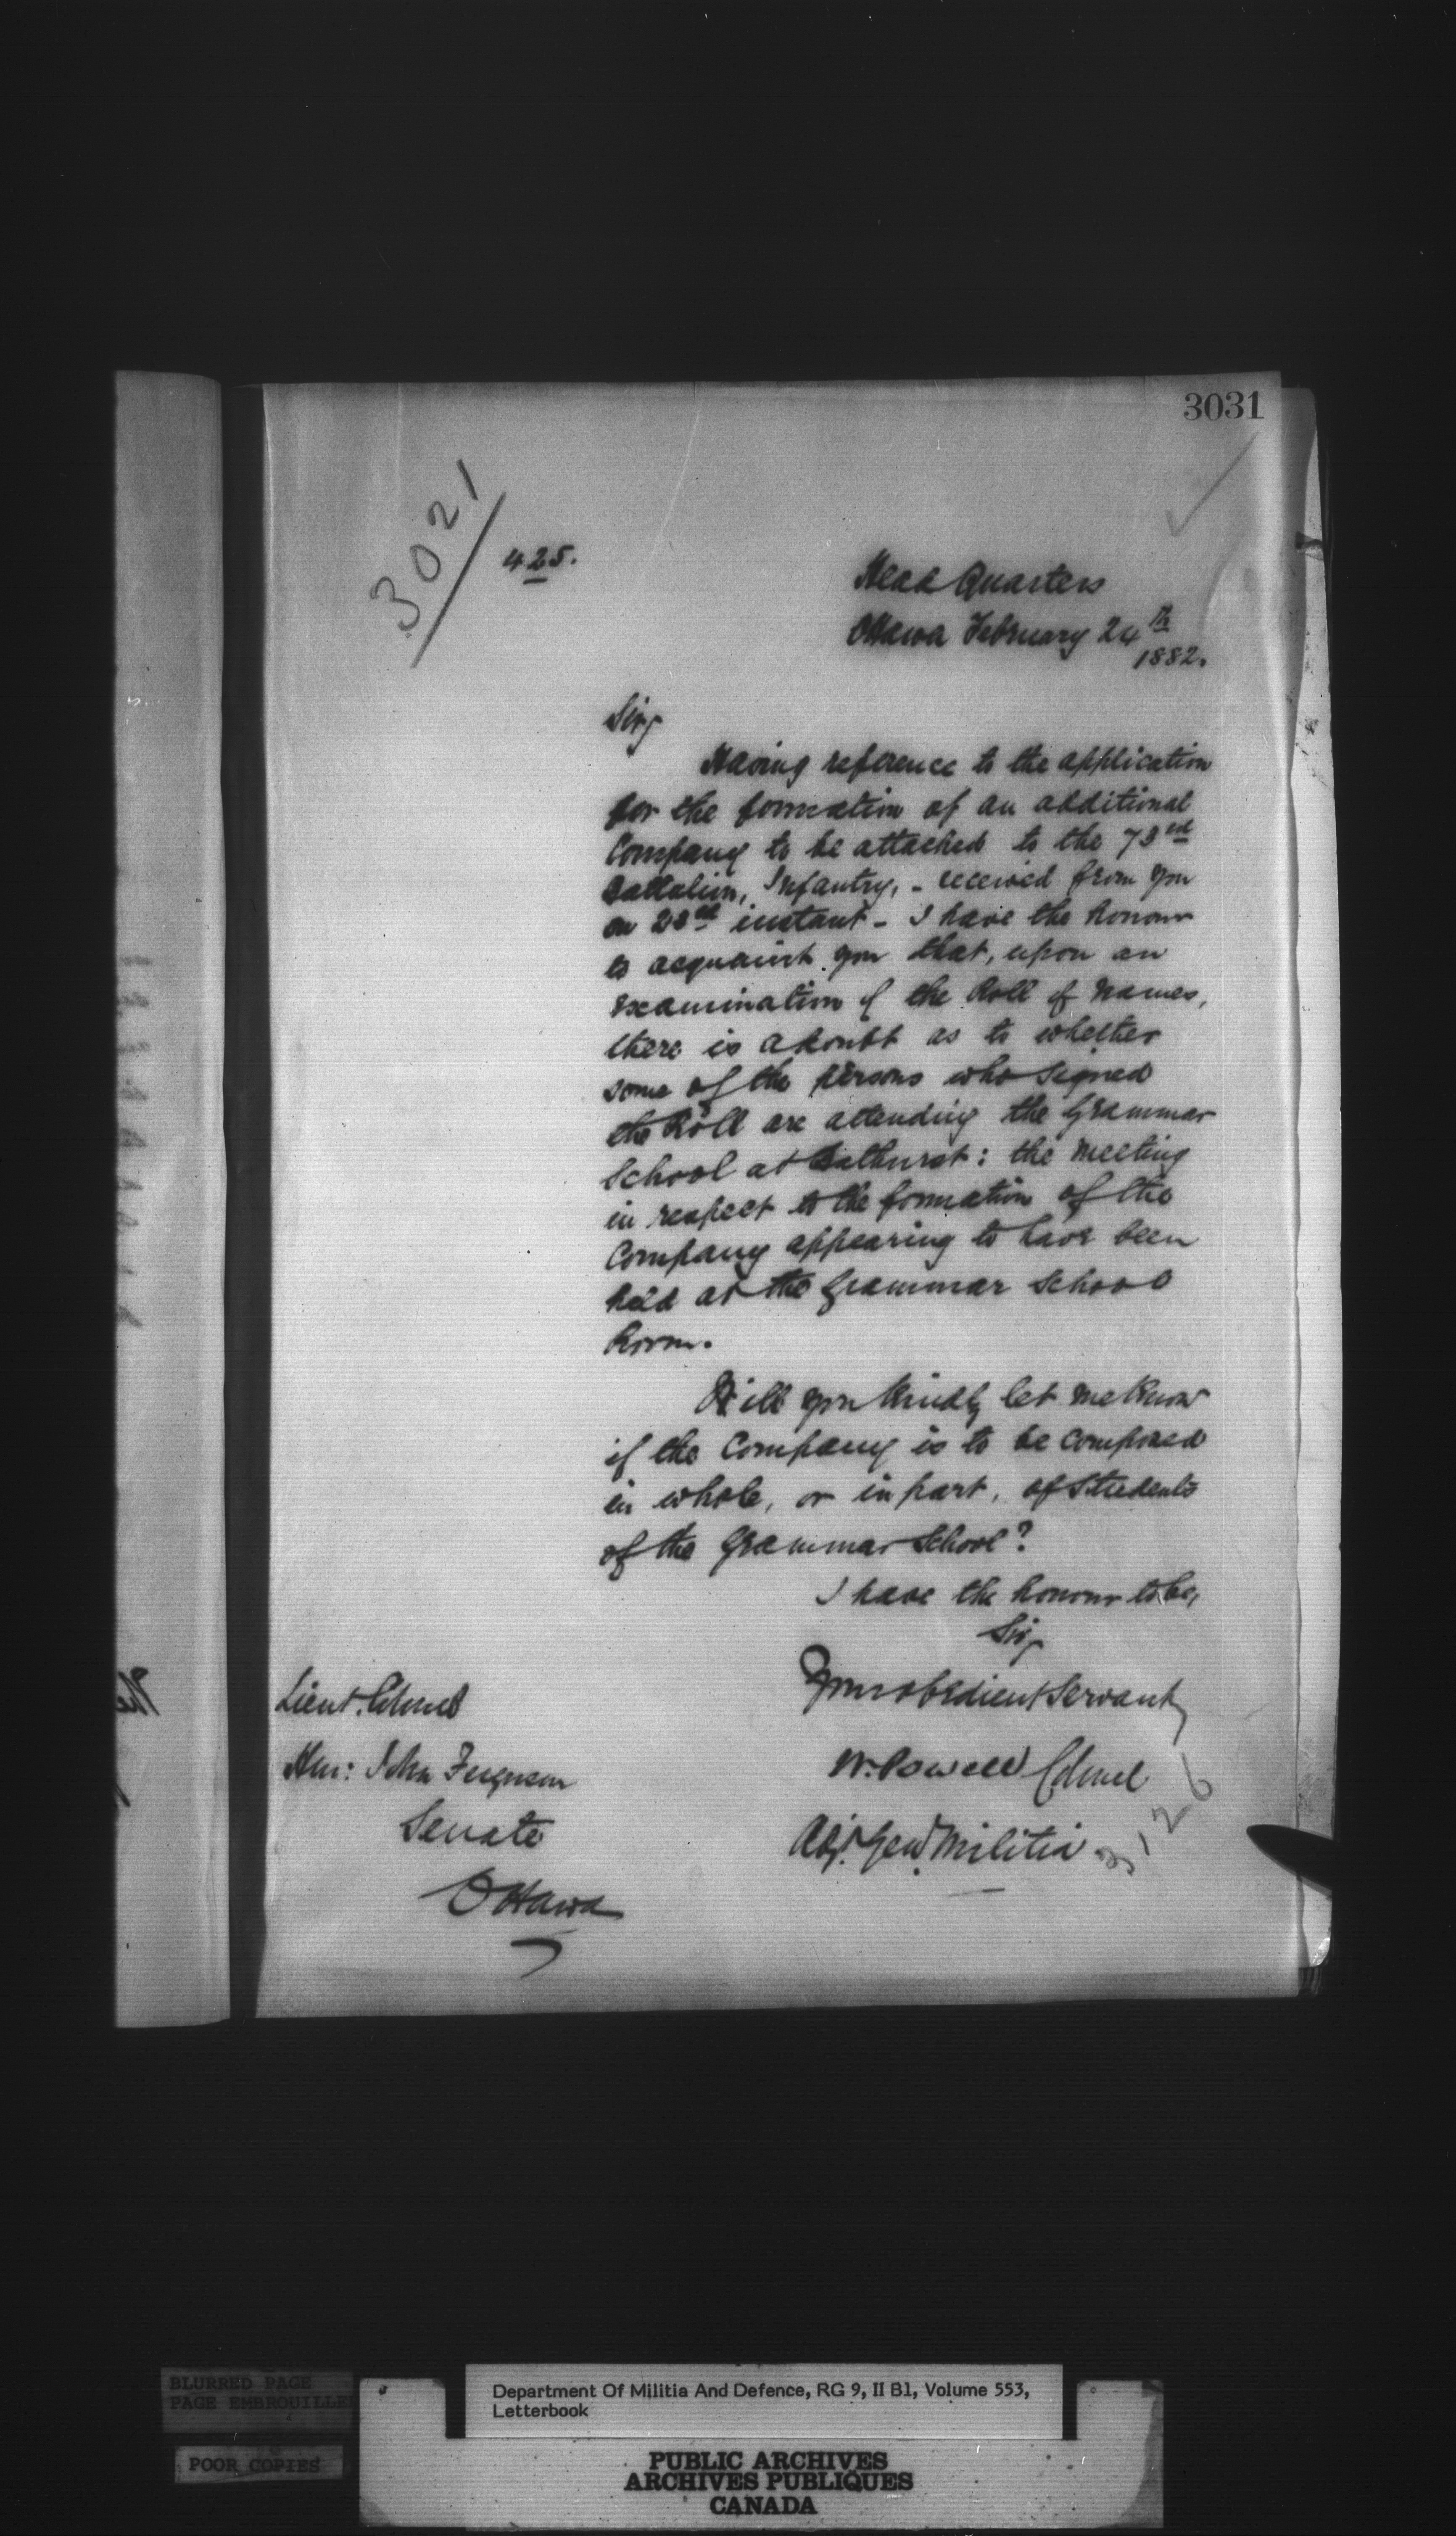 3031
3021
425.
Head Quarters
Ottawa February 24th
1882.
Sir,
Having reference to the application
for the formation of an additional
Company to be attached to the 73rd
Battalion, Infantry, - received from you
on 23rd instant - I have the honour
to acquaint you that, upon an
examination of the Roll of Names,
there is a doubt as to whether
some of the persons who signed
the Roll are attending the Grammar
School at Bathurst: the meeting
in respect to the formation of the
Company appearing to have been
held at the Grammar School
Room.
Will you kindly let me know
if the Company is to be composed
in whole, or in part, of Students
of the Grammar School?
I have the honour to be,
Sir,
Your obedient Servant,
W. Powell Colonel
Adjt. Genl. Militia
3126
Lieut. Colonel
Hon: John Ferguson
Senate
Ottawa
BLURRED PAGE
PAGE EMBROUILLE
POOR COPIES
Department Of Militia And Defence, RG 9, II B1, Volume 553,
Letterbook
PUBLIC ARCHIVES
ARCHIVES PUBLIQUES
CANADA